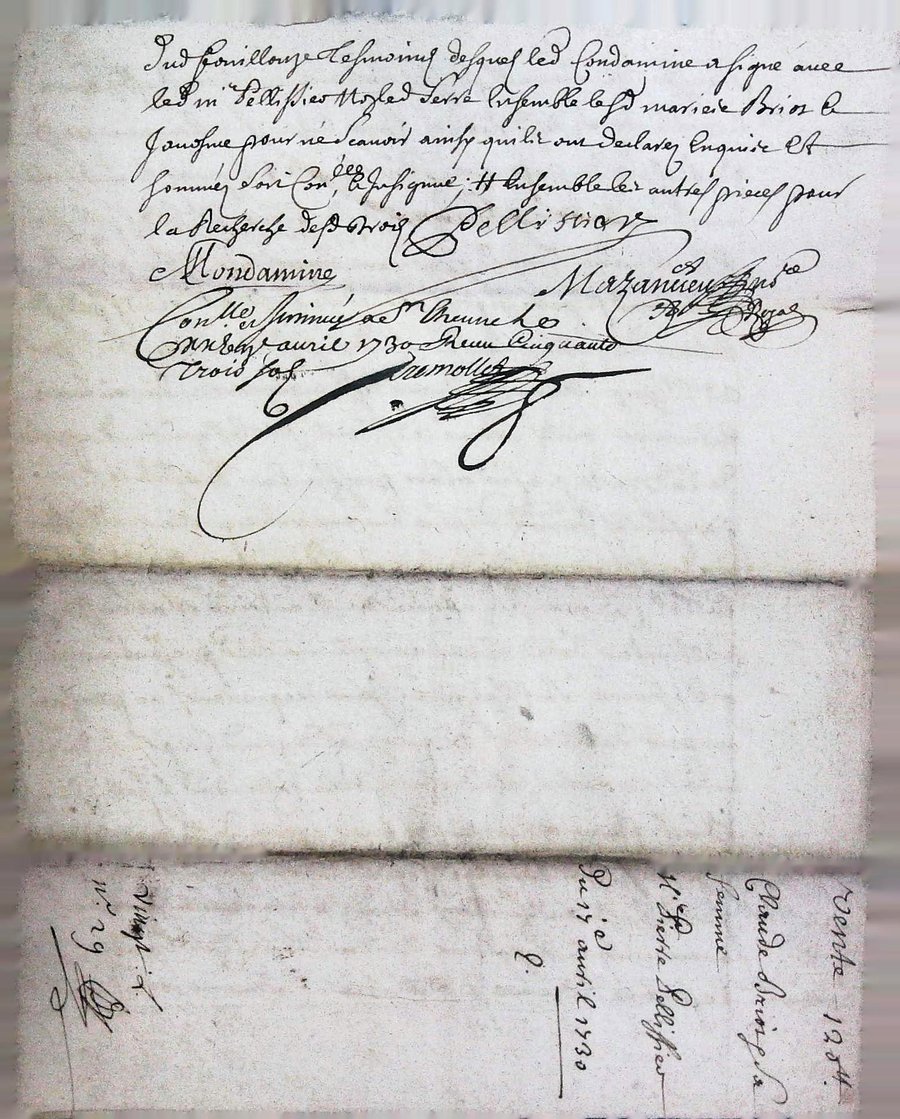 Dud feouillouze tesmoins desquels led Condamine a signé avec
led mr Pellissier non led Serre Ensemble lesd mariés Briot &
pour ne scavoir ainsy quils ont declaré Enquis Et
sommés soit Con, & Insignue; # Ensemble les autres pieces pour
la Recherche desd trois Pellissier
Condamine Mazaudier nore
Royal
Conlle et Insinué a
avril 1730 Receu Cinquante
trois sols Tremollet
Vente 120tt
Claude Briot & sa
femme
Mr Pierre Pellissier
Du 17e avril 1730
Vingt
n° 29